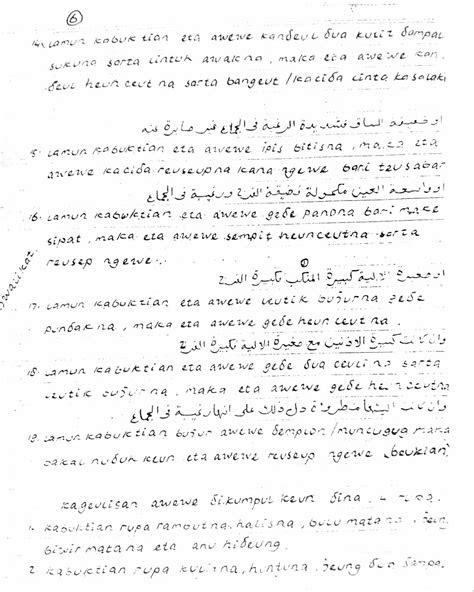 6
14. Lamun kabuktian eta awewe kandeul dua kulit dampal
sukuna sarta lintuh awakna, maka eta awewe kan
deul heunceutna sarta bangeut / kacida cinta kasalaki
او ضعيفة الساق فشديدة الرغبة فى الجماع غير صابرة عنه
15. Lamun kabuktian eta awewe ipis bitisna, maka eta
awewe kacida reuseupna kana ngewe bari teusabar
او واسعة العين مكحولة فضيقة الفرج ورغيبة فى الجماع
16. Lamun kabuktian eta awewe gede panona bari make
sipat, maka eta awewe sempit heunceutna sarta
reusep ngewe.
او صغيرة الالية كبيرة المنكب فكبيرة الفرج
17. Lamun kabuktian eta awewe leutik bujurna gede
pundakna, maka eta awewe gede heunceutna.
وان كانت كبيرة الاذنين مع صغيرة الالية فكبيرة الفرج
18. Lamun kabuktian eta awewe gede dua ceulina sarta
leutik bujurna, maka eta awewe gede heunceutna
وان كانت دل ذلك على انها رغيبة فى الجماع
19. Lamun kabuktian bujur awewe demplon / muncugug maka
bakal nuduhkeun eta awewe reuseup ngewe (beukian)
Kageulisan awewe dikumpulkeun dina
1. Kabuktian rupa rambutna, halisna, bulu matana, jeung
biwir matana eta anu hideung.
2. Kabuktian rupa kulitna, huntuna, jeung